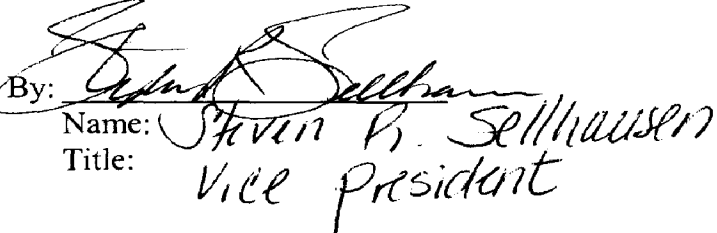 By: Steven R. Sellhausen
Name: Steven R. Sellhausen
Title: Vice President